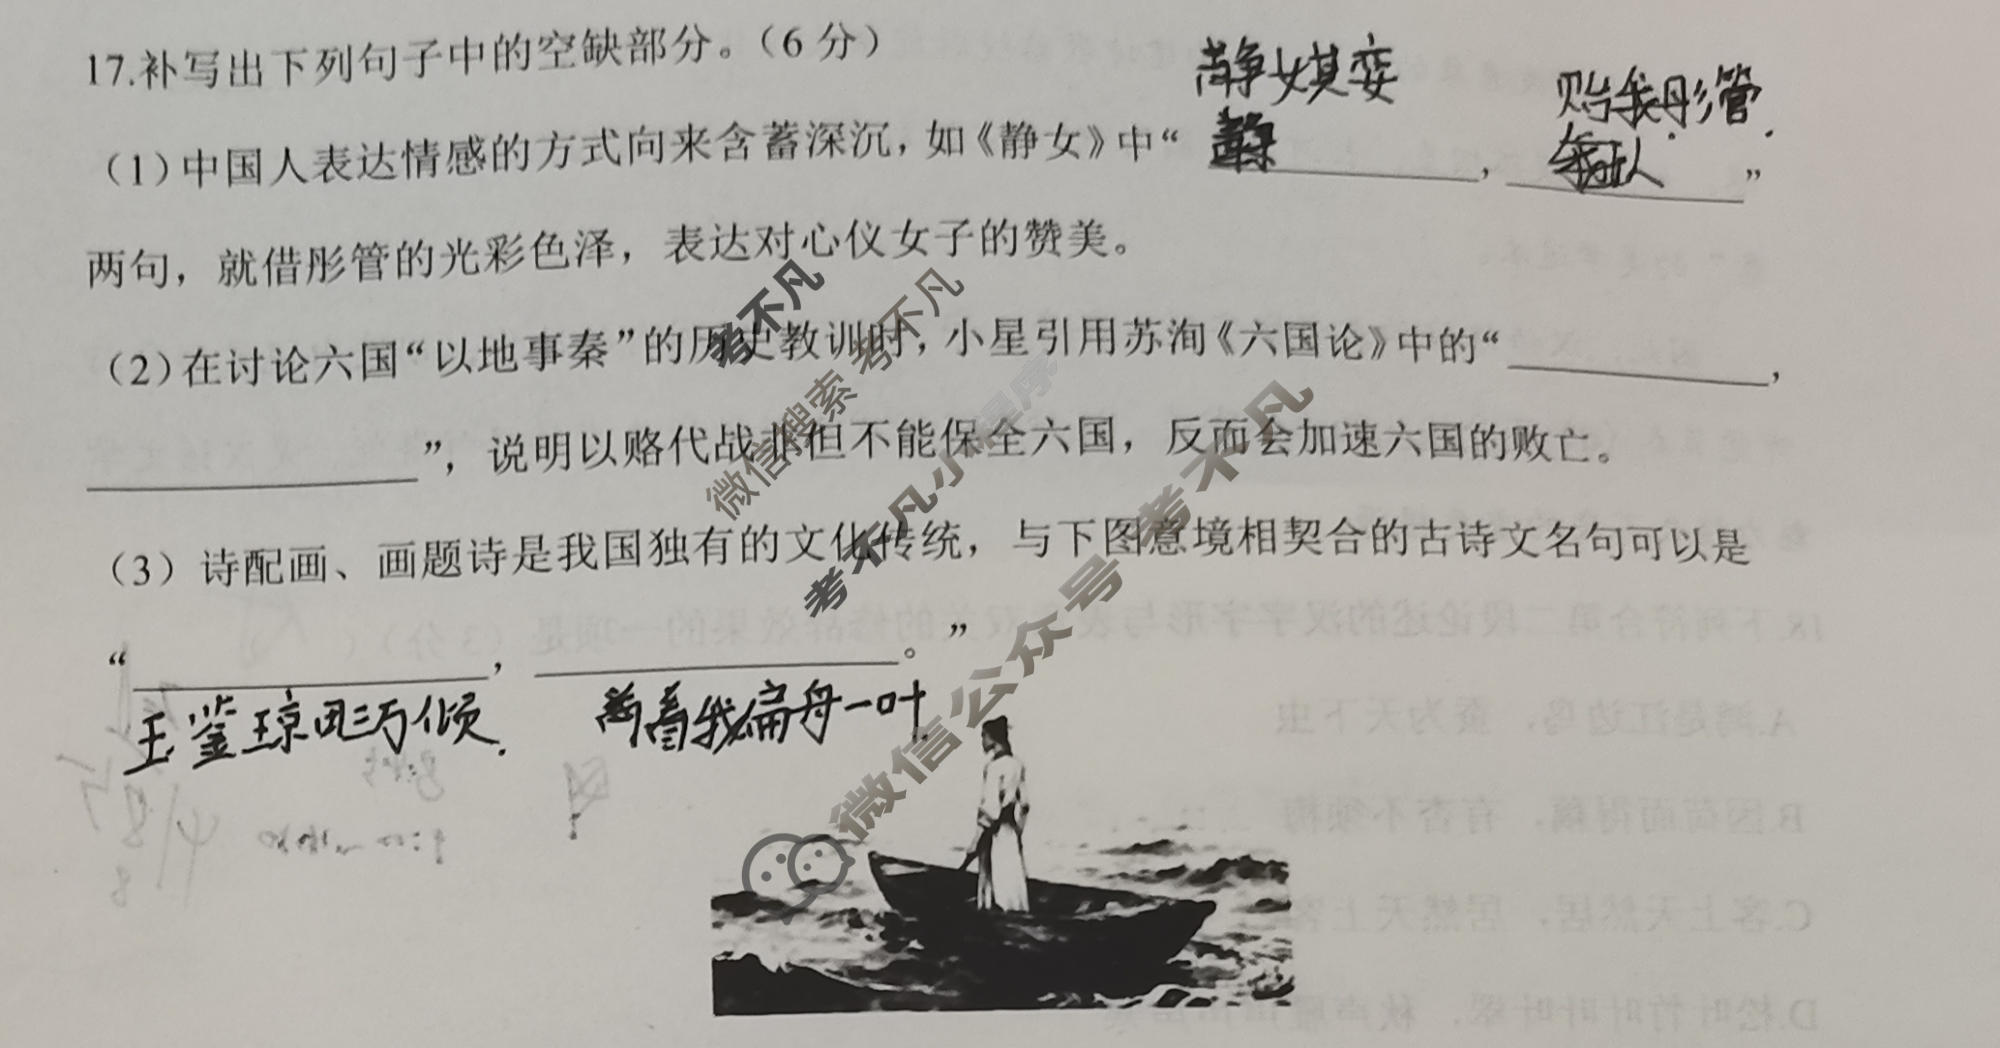 17.补写出下列句子中的空缺部分。（6 分）
静女其娈
贻我彤管
（1）中国人表达情感的方式向来含蓄深沉，如《静女》中“________，________”
两句，就借彤管的光彩色泽，表达对心仪女子的赞美。
（2）在讨论六国“以地事秦”的历史教训时，小星引用苏洵《六国论》中的“________，
________”，说明以赂代战非但不能保全六国，反而会加速六国的败亡。
（3）诗配画、画题诗是我国独有的文化传统，与下图意境相契合的古诗文名句可以是
“________，________。”
玉鉴琼田三万倾. 着我扁舟一叶.
考不凡
微信搜索 考不凡
考不凡小程序
微信公众号 考不凡